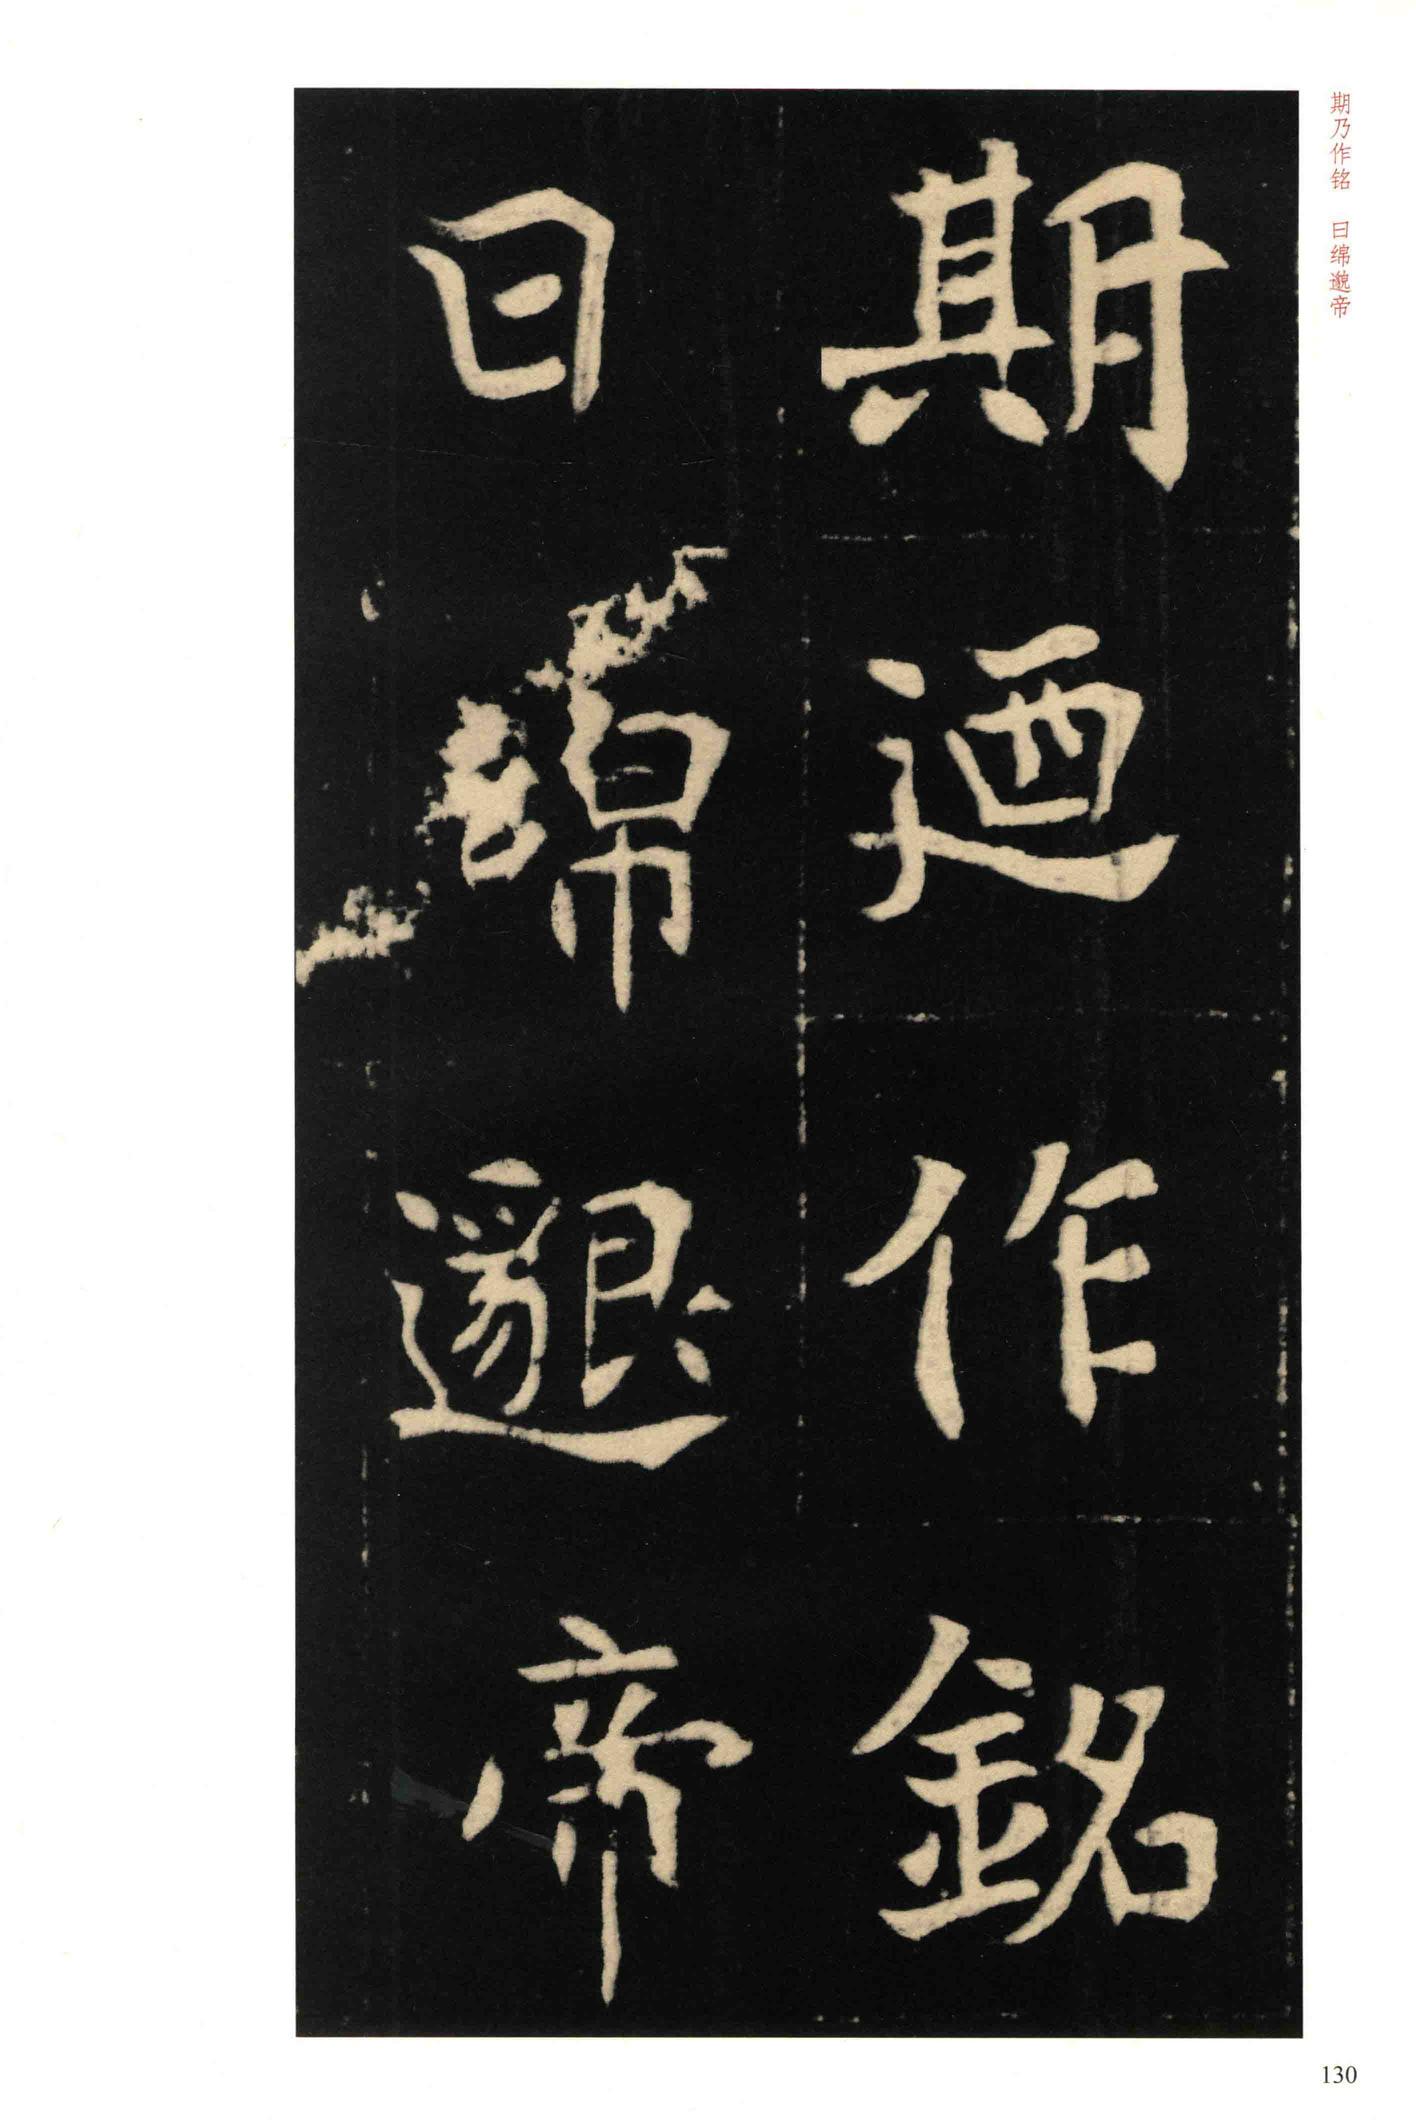 期乃作铭　曰绵邈帝
期迺作銘
曰綿邈帝
130